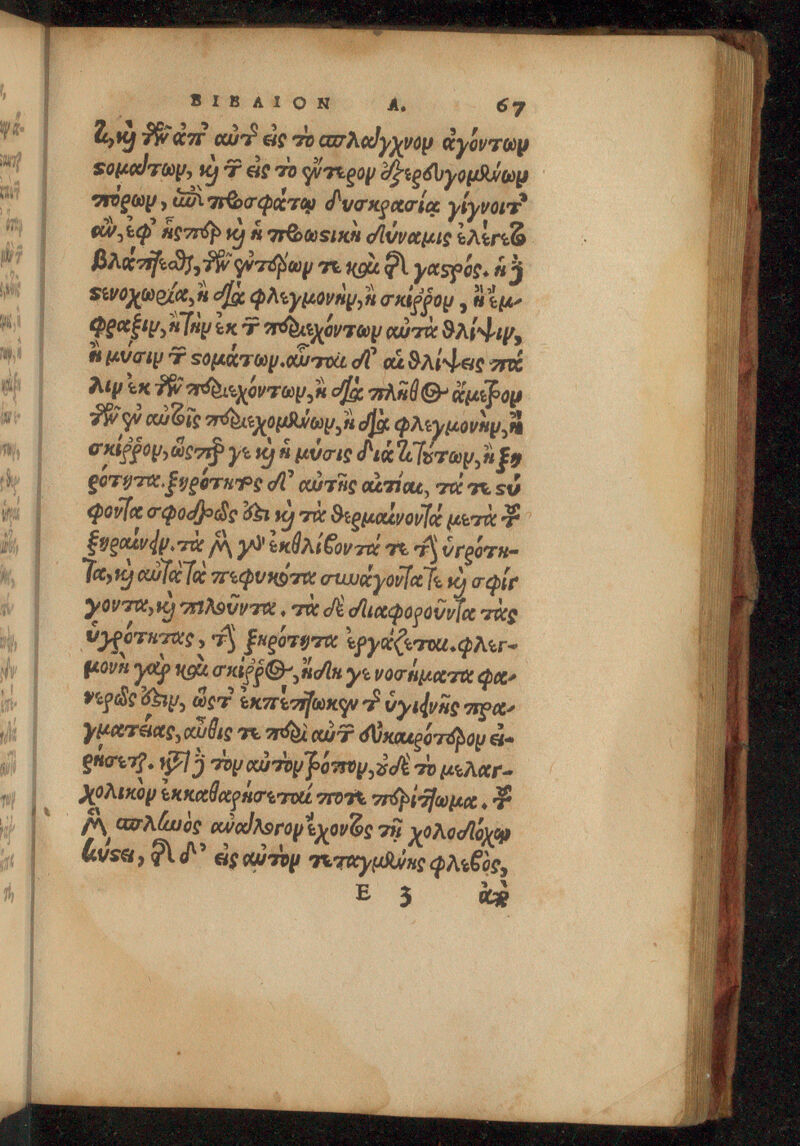 ΒΙΒΛΙΟΝ Α. 67
καὶ τῶν ἀπ' αὐτοῦ εἰς τὸ σπλάγχνον ἀγόντων
στομάτων, καὶ τῶν εἰς τὸ ἔντερον ἐξερευγομένων
πόρων, ἀλλὰ προσφάτῳ δυσκρασίᾳ γίγνοιτ'
ἂν, ἐφ' ἧσπερ καὶ ἡ προωστικὴ δύναμις ἐλέγετο
βλάπτεσθαι, τῶν ἐντέρων τε καὶ τῆς γαστρός. ἡ δὲ
στενοχωρία, ἢ διὰ φλεγμονὴν, ἢ σκίῤῥον, ἢ ἔμ-
φραξιν, ἢ τὴν ἐκ τῶν περιεχόντων αὐτὰ θλίψιν,
ἢ μύσιν τῶν στομάτων. αὗται δ' αἱ θλίψεις πά
λιν ἐκ τῶν περιεχόντων, ἢ διὰ πλῆθος ἄμετρον
τῶν ἐν αὐτοῖς περιεχομένων, ἢ διὰ φλεγμονὴν, ἢ
σκίῤῥον, ὥσπερ γε καὶ ἡ μύσις διά τε τούτων, ἢ ξη
ρότητα. ξηρότητος δ' αὐτῆς αἰτίαι, τά τε στύ
φοντα σφοδρῶς ἐστι καὶ τὰ θερμαίνοντά μετὰ τοῦ
ξηραίνειν. τὰ μὲν γὰρ ἐκθλίβοντά τε τὴν ὑγρότη-
τα, καὶ αὐτὰ τὰ πεφυκότα συνάγοντα τε καὶ σφίγ
γοντα, καὶ πιλοῦντα. τὰ δὲ διαφοροῦντα τὰς
ὑγρότητας, τὴν ξηρότητα ἐργάζεται. φλεγ-
μονὴ γὰρ καὶ σκίῤῥος, ἤδη γε νοσήματα φα-
νερῶς ἐστιν, ὥστ' ἐκπέπτωκεν τῆς ὑγιεινῆς πρα-
γματείας, αὖθις τε περὶ αὐτῶν εὐκαιρότερον εἰ-
ρήσεται. κατὰ δὲ τὸν αὐτὸν τρόπον, οὐδὲ τὸ μελαγ-
χολικὸν ἐκκαθαρήσεταί ποτε περίττωμα. τοῦ
μὲν σπληνὸς ἀνάλογον ἔχοντος τῇ χολοδόχῳ
κύστει, τῆς δ' εἰς αὐτὸν τεταγμένης φλεβὸς,
E 3 ἀρ